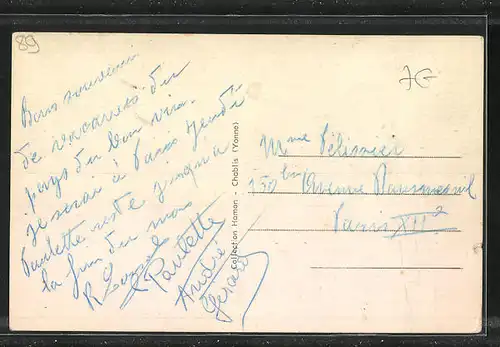 89
7G
Bons souvenirs
de vacances du
pays du bon vin.
Je serai à Paris Jeudi
Paulette reste jusqu'à
la fin du mois
R
Paulette
André
Gérard
Collection Hamon - Chablis (Yonne)
Mme Pélissier
150 bis Avenue Daumesnil
Paris XII e